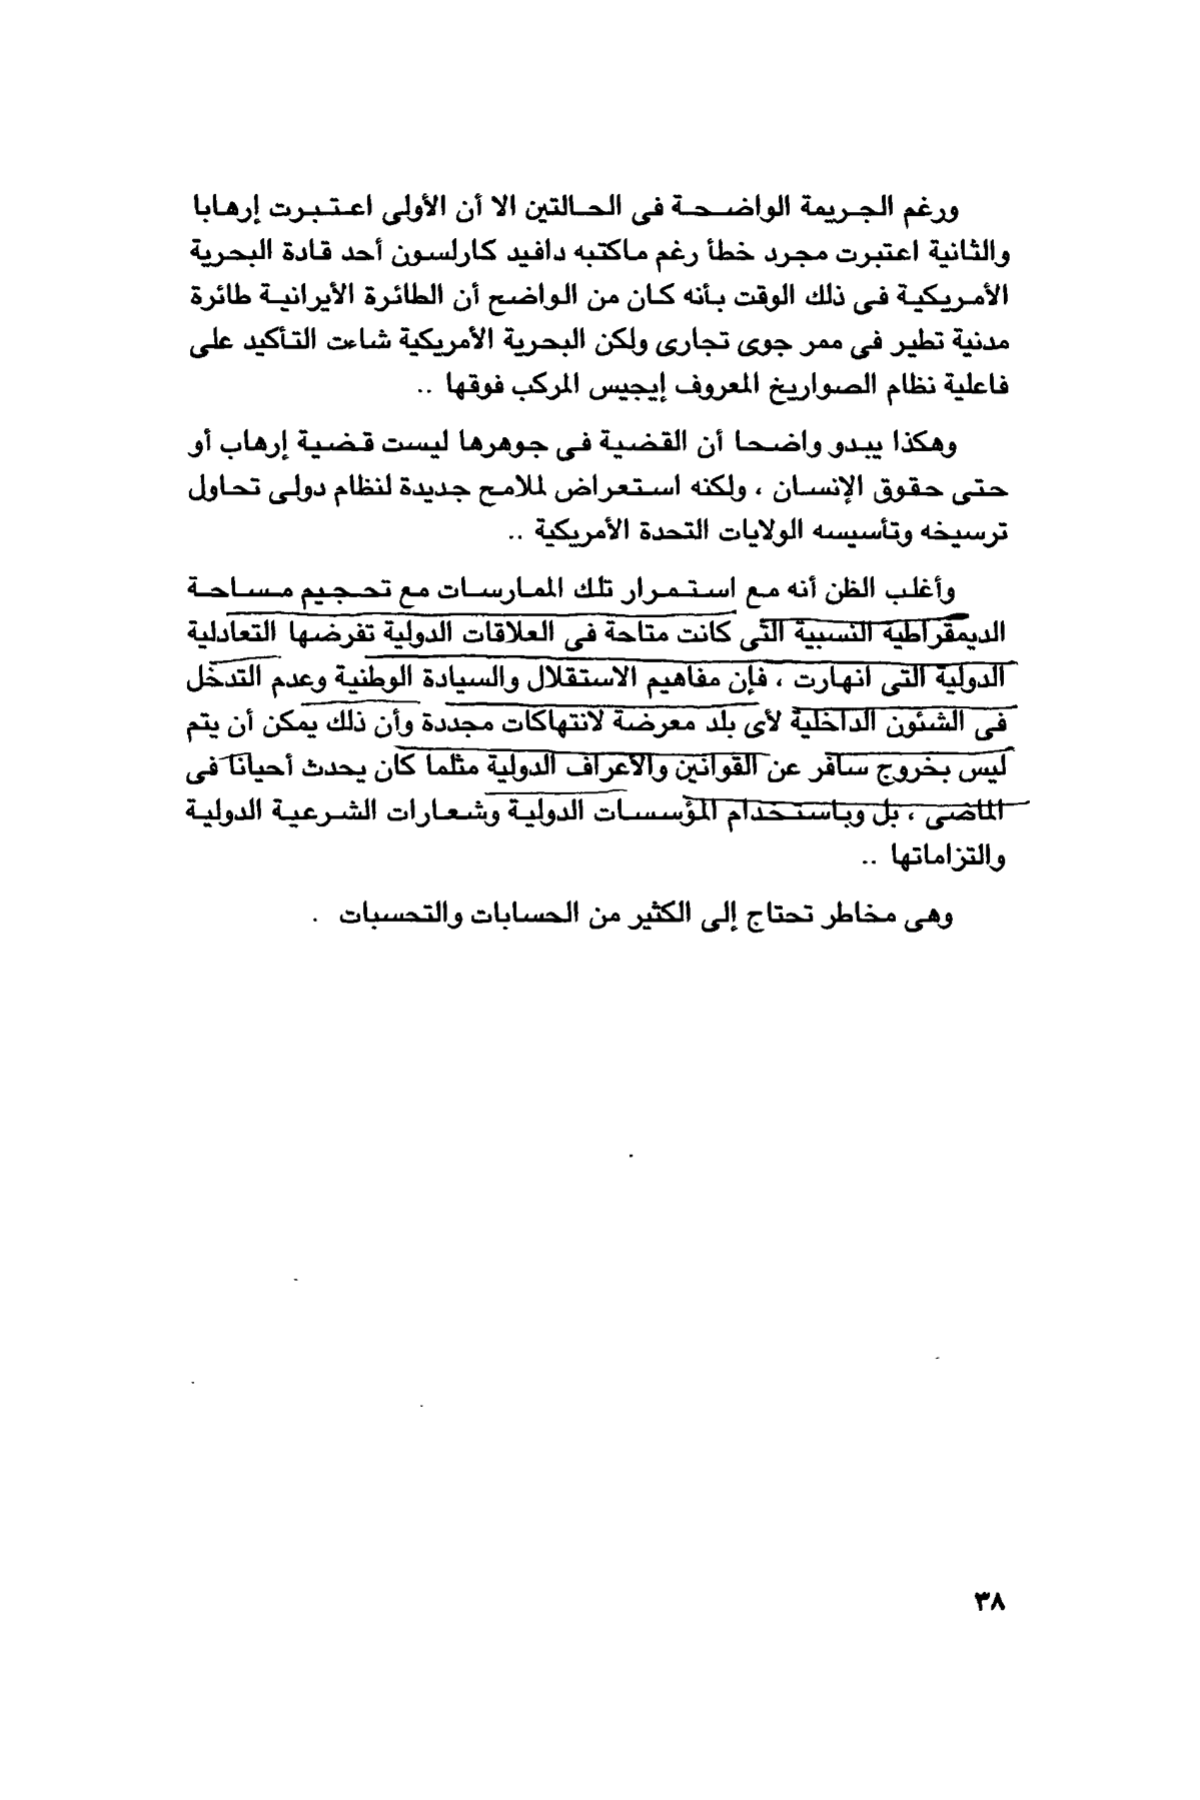 ورغم الجريمة الواضحة فى الحالتين الا أن الأولى اعتبرت إرهابا
والثانية اعتبرت مجرد خطأ رغم ماكتبه دافيد كارلسون أحد قادة البحرية
الأمريكية فى ذلك الوقت بأنه كان من الواضح أن الطائرة الأيرانية طائرة
مدنية تطير فى ممر جوى تجارى ولكن البحرية الأمريكية شاءت التأكيد على
فاعلية نظام الصواريخ المعروف إيجيس المركب فوقها ..
وهكذا يبدو واضحا أن القضية فى جوهرها ليست قضية إرهاب أو
حتى حقوق الإنسان ، ولكنه استعراض لملامح جديدة لنظام دولى تحاول
ترسيخه وتأسيسه الولايات التحدة الأمريكية ..
وأغلب الظن أنه مع استمرار تلك الممارسات مع تحجيم مساحة
الديمقراطية النسبية التى كانت متاحة فى العلاقات الدولية تفرضها التعادلية
الدولية التى انهارت ، فإن مفاهيم الاستقلال والسيادة الوطنية وعدم التدخل
فى الشئون الداخلية لأى بلد معرضة لانتهاكات مجددة وأن ذلك يمكن أن يتم
ليس بخروج سافر عن القوانين والأعراف الدولية مثلما كان يحدث أحيانا فى
الماضى ، بل وباستخدام المؤسسات الدولية وشعارات الشرعية الدولية
والتزاماتها ..
وهى مخاطر تحتاج إلى الكثير من الحسابات والتحسبات .
٣٨